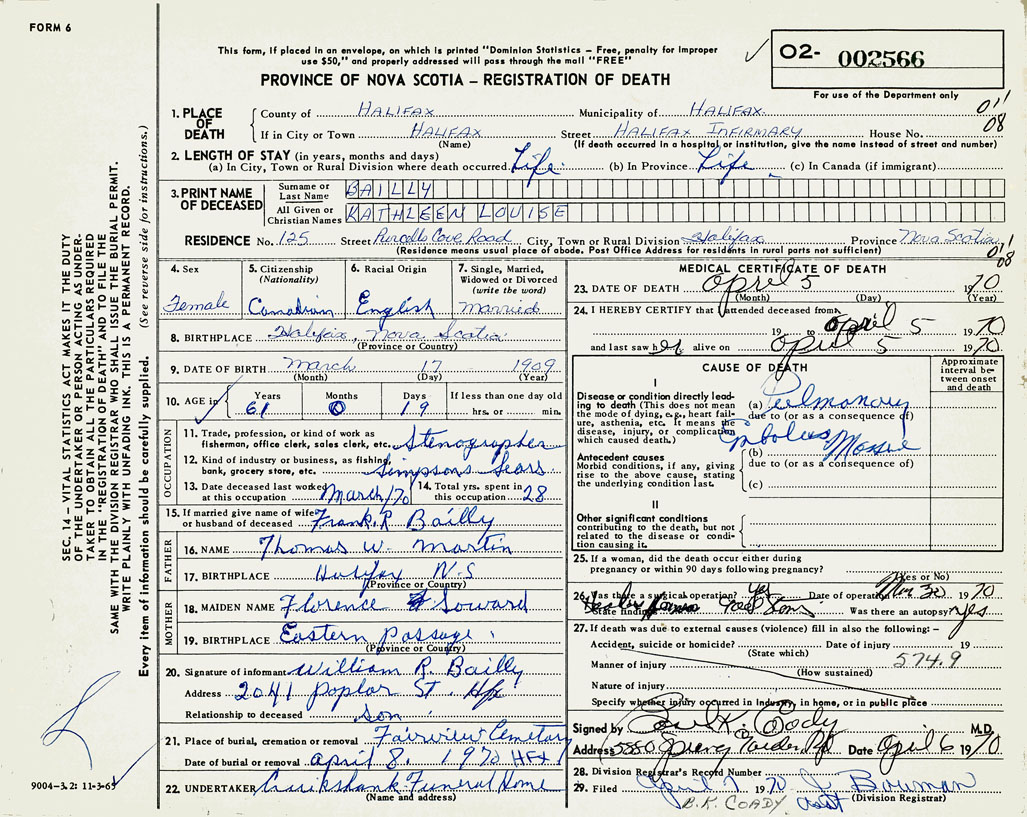 FORM 6
This form, if placed in an envelope, on which is printed "Dominion Statistics – Free, penalty for improper
use $50," and properly addressed will pass through the mail "FREE"
PROVINCE OF NOVA SCOTIA – REGISTRATION OF DEATH
O2- 002566
For use of the Department only
SEC. 14 – VITAL STATISTICS ACT MAKES IT THE DUTY
OF THE UNDERTAKER OR PERSON ACTING AS UNDER-
TAKER TO OBTAIN ALL THE PARTICULARS REQUIRED
IN THE "REGISTRATION OF DEATH" AND TO FILE THE
SAME WITH THE DIVISION REGISTRAR WHO SHALL ISSUE THE BURIAL PERMIT.
WRITE PLAINLY WITH UNFADING INK. THIS IS A PERMANENT RECORD.
Every item of information should be carefully supplied. (See reverse side for instructions.)
1. PLACE OF DEATH
County of HALIFAX Municipality of HALIFAX.
If in City or Town HALIFAX Street HALIFAX INFIRMARY House No.
(Name) (If death occurred in a hospital or institution, give the name instead of street and number)
01'
08
2. LENGTH OF STAY (in years, months and days)
(a) In City, Town or Rural Division where death occurred Life. (b) In Province Life (c) In Canada (if immigrant)
3. PRINT NAME OF DECEASED
Surname or Last Name BAILLY
All Given or Christian Names KATHLEEN LOUISE
RESIDENCE No. 125 Street Purcells Cove Road City, Town or Rural Division Halifax Province Nova Scotia
(Residence means usual place of abode. Post Office Address for residents in rural parts not sufficient)
01'
08
4. Sex
Female
5. Citizenship
(Nationality)
Canadian
6. Racial Origin
English
7. Single, Married,
Widowed or Divorced
(write the word)
Married
8. BIRTHPLACE Halifax, Nova Scotia
(Province or Country)
9. DATE OF BIRTH March 17 1909
(Month) (Day) (Year)
10. AGE in Years Months Days If less than one day old
61 0 19 hrs. or min.
OCCUPATION
11. Trade, profession, or kind of work as
fisherman, office clerk, sales clerk, etc. Stenographer
12. Kind of industry or business, as fishing,
bank, grocery store, etc. Simpsons Sears
13. Date deceased last worked
at this occupation March/70
14. Total yrs. spent in
this occupation 28
15. If married give name of wife
or husband of deceased Frank R Bailly
FATHER
16. NAME Thomas W. Martin
17. BIRTHPLACE Halifax N.S
(Province or Country)
MOTHER
18. MAIDEN NAME Florence Soward
19. BIRTHPLACE Eastern Passage
(Province or Country)
20. Signature of informant William R. Bailly
Address 2041 Poplar St. Hfx
Relationship to deceased son
21. Place of burial, cremation or removal Fairview Cemetary
Date of burial or removal April 8. 1970 HFX
22. UNDERTAKER Cruikshank Funeral Home
(Name and address)
9004-3.2: 11-3-69
MEDICAL CERTIFICATE OF DEATH
23. DATE OF DEATH April 5 1970
(Month) (Day) (Year)
24. I HEREBY CERTIFY that I attended deceased from
19 to April 5 1970
and last saw her alive on April 5 1970
CAUSE OF DEATH
Approximate interval between onset and death
I
Disease or condition directly lead-
ing to death (This does not mean
the mode of dying, e.g., heart fail-
ure, asthenia, etc. It means the
disease, injury, or complication
which caused death.)
(a) Pulmonary
due to (or as a consequence of)
Embolus Massive
Antecedent causes
Morbid conditions, if any, giving
rise to the above cause, stating
the underlying condition last.
(b)
due to (or as a consequence of)
(c)
II
Other significant conditions
contributing to the death, but not
related to the disease or condi-
tion causing it.
25. If a woman, did the death occur either during
pregnancy or within 90 days following pregnancy?
(Yes or No)
26. Was there a surgical operation? Yes Date of operation Mar. 30 1970
State findings Was there an autopsy? yes
27. If death was due to external causes (violence) fill in also the following: –
Accident, suicide or homicide? Date of injury 19
(State which)
574.9
Manner of injury
(How sustained)
Nature of injury
Specify whether injury occurred in industry, in home, or in public place
Signed by Paul K. Coady M.D.
Address 5880 Spring Garden Rd Date April 6 1970
28. Division Registrar's Record Number
29. Filed April 7 1970 J. Bowman
B.K. COADY (Division Registrar)